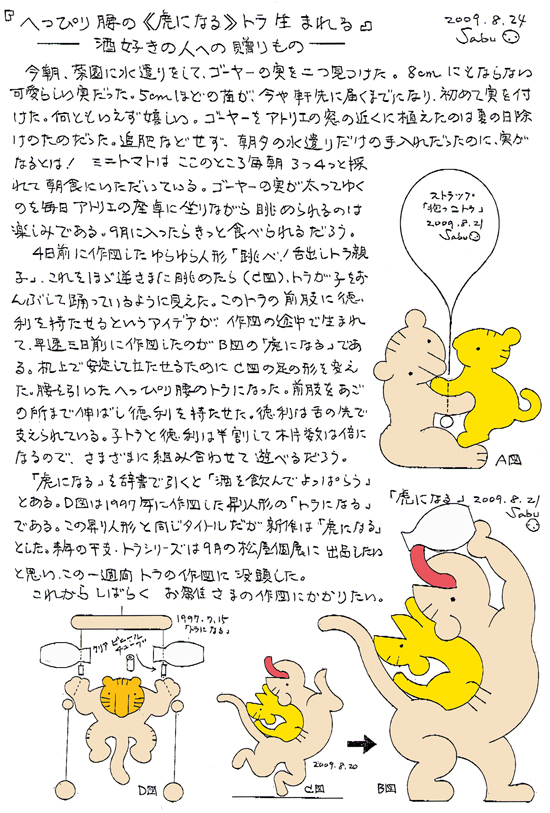 『へっぴり腰の《虎になる》トラ生まれる』
―― 酒好きの人への贈りもの ――
2009.8.24
Sabu
今朝、菜園に水遣りをして、ゴーヤーの実を二つ見つけた。8cmにもならない
可愛らしい実だった。5cmほどの苗が、今や軒先に届くまでになり、初めて実を付
けた。何ともいえず嬉しい。ゴーヤーをアトリエの窓の近くに植えたのは夏の日除
けのためだった。追肥などせず、朝夕の水遣りだけの手入れだったのに、実が
なるとは! ミニトマトはここのところ毎朝3つ4つと採
れて朝食にいただいている。ゴーヤーの実が太ってゆく
のを毎日アトリエの座卓に坐りながら眺められるのは
楽しみである。9月に入ったらきっと食べられるだろう。
4日前に作図したゆらゆら人形「跳べ!舌出しトラ親
子」、これをほぼ逆さまに眺めたら(C図)、トラが子をおん
ぶして踊っているように見えた。このトラの前肢に徳
利を持たせるというアイデアが、作図の途中で生まれ
て、早速三日前に作図したのがB図の「虎になる」であ
る。机上で安定して立たせるためにC図の足の形を変え
た。腰を引いたへっぴり腰のトラになった。前肢をあご
の所まで伸ばし徳利を持たせた。徳利は舌の先で
支えられている。子トラと徳利は半割して木片数は倍に
なるので、さまざまに組み合わせて遊べるだろう。
「虎になる」を辞書で引くと「酒を飲んでよっぱらう」
とある。D図は1997年に作図した昇り人形の「トラになる」
である。この昇り人形と同じタイトルだが新作は「虎になる」
とした。来年の干支・トラシリーズは9月の松屋個展に出品したい
と思い、この一週間トラの作図に没頭した。
これからしばらく お雛さまの作図にかかりたい。
ストラップ
「抱っこトラ」
2009.8.21
Sabu
A図
「虎になる」2009.8.21
Sabu
B図
1997.7.15
「トラになる」
クリアビニール
チューブ
D図
2009.8.20
C図